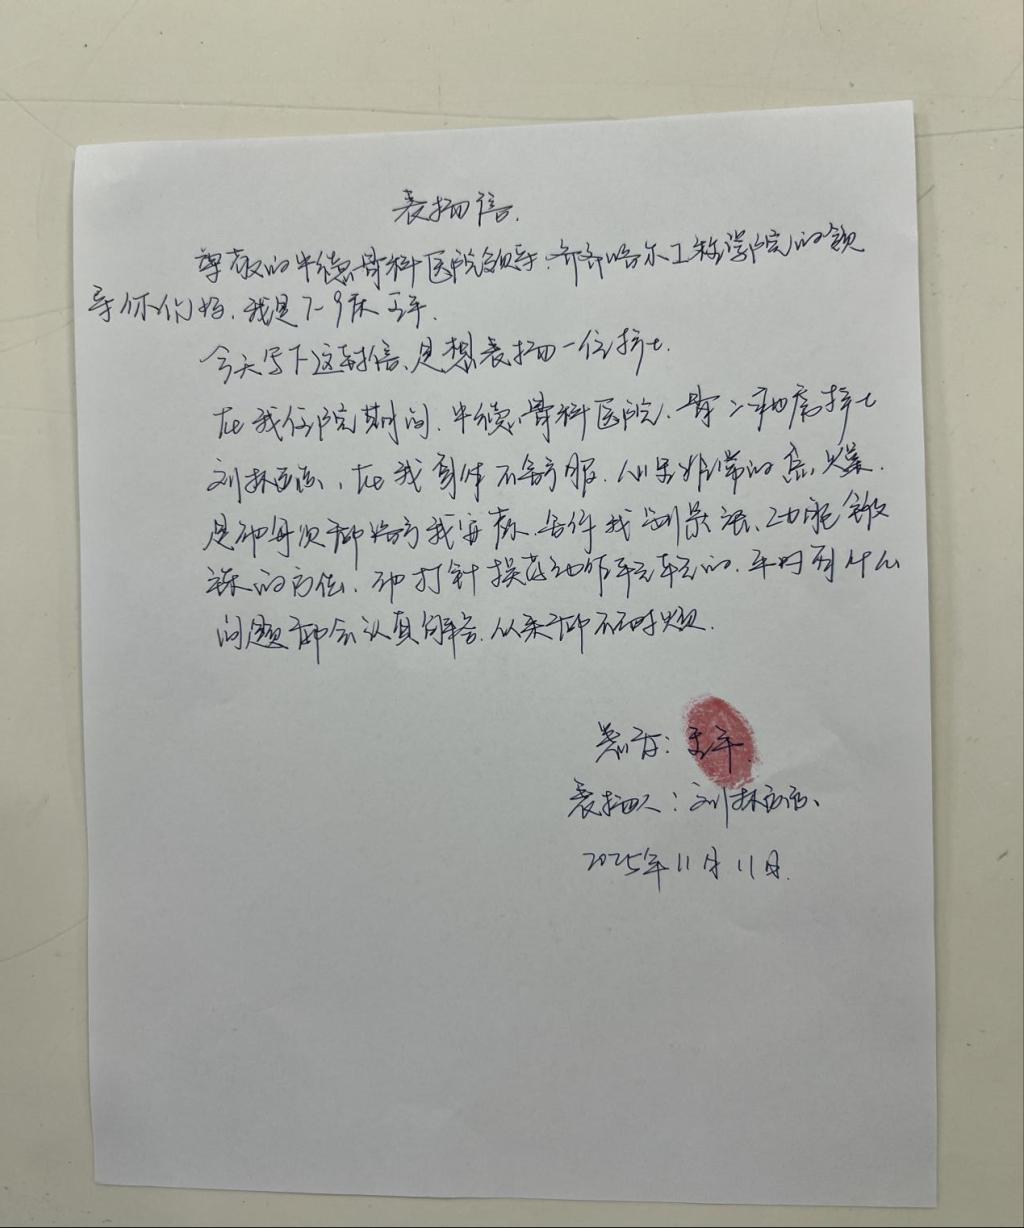 表扬信.
尊敬的中德骨科医院领导.齐齐哈尔工程学院的领
导你们好.我是7-9床王平.
今天写下这封信、是想表扬一位护士.
在我住院期间.中德骨科医院.骨二科病房护士
刘林、在我身体不舒服.心里非常的急燥.
是她每次都给予我安慰.告诉我注意、功能锻
炼的方法.她打针操作动作轻轻的.平时有什么
问题都会认真解答.从来都不耐烦.
患者:王平.
表扬人:刘林、
2025年11月11日.